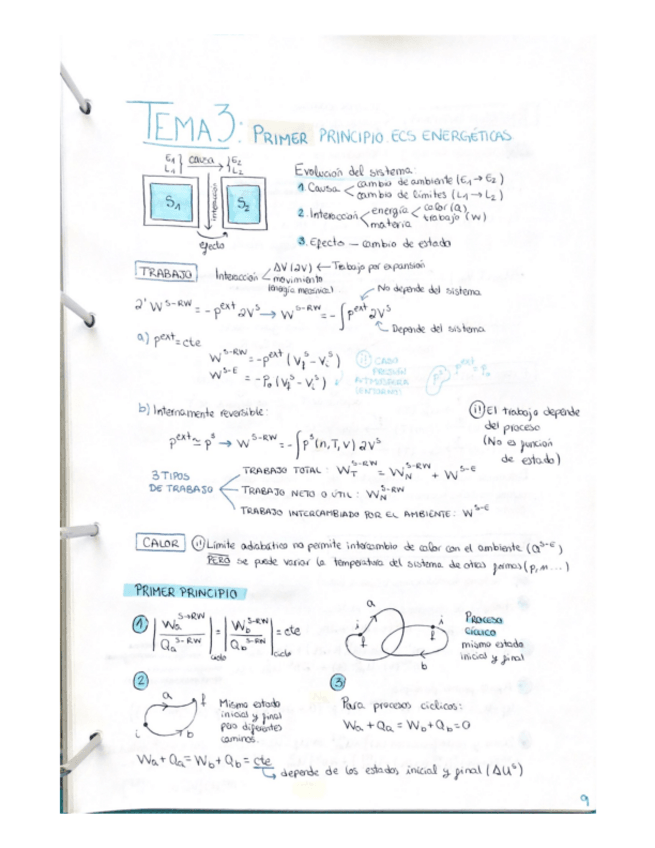 TEMA 3: PRIMER PRINCIPIO. ECS ENERGÉTICAS
E1 } causa { E2
L1 L2
S1 interacción S2
efecto
Evolución del sistema:
1. Causa < cambio de ambiente (E1 → E2)
cambio de límites (L1 → L2)
2. Interacción < energía < calor (Q)
trabajo (W)
materia
3. Efecto — cambio de estado
TRABAJO Interacción < ΔV (∂V) ← Trabajo por expansión
movimiento
(energía mecánica)
No depende del sistema
∂'W^S-RW = -p^ext ∂V^s → W^S-RW = -∫p^ext ∂V^s
Depende del sistema
a) p^ext = cte
W^S-RW = -p^ext (V_f^s - V_i^s)
W^S-E = -P_0 (V_f^s - V_i^s)
(!) CASO
PRESIÓN
ATMOSFÉRICA
(ENTORNO)
p^s p^ext = P_0
b) Internamente reversible:
p^ext ≃ p^s → W^S-RW = -∫p^s(n,T,V) ∂V^s
(!) El trabajo depende
del proceso
(No es función
de estado)
3 TIPOS
DE TRABAJO
TRABAJO TOTAL: W_T^S-RW = W_N^S-RW + W^S-E
TRABAJO NETO O ÚTIL: W_N^S-RW
TRABAJO INTERCAMBIADO POR EL AMBIENTE: W^S-E
CALOR (!) Límite adiabático no permite intercambio de calor con el ambiente (Q^S-E)
PERO se puede variar la temperatura del sistema de otras formas (p, n...)
PRIMER PRINCIPIO
1 |W_a^S→RW / Q_a^S-RW|ciclo = |W_b^S-RW / Q_b^S-RW|ciclo = cte
a
i f i f
b
Proceso
cíclico
mismo estado
inicial y final
2
a f
i b
Mismo estado
inicial y final
por diferentes
caminos.
W_a + Q_a = W_b + Q_b = cte
depende de los estados inicial y final (ΔU^s)
3
Para procesos cíclicos:
W_a + Q_a = W_b + Q_b = 0
9